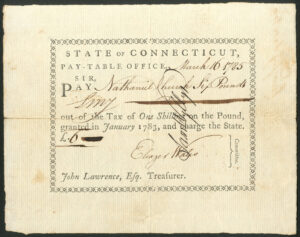 STATE OF CONNECTICUT,
PAY-TABLE OFFICE, March 16 1785
SIR,
PAY Nathaniel Church Six Pounds
out of the Tax of One Shilling on the Pound,
granted in January 1783, and charge the State.
£6
Committee.
John Lawrence, Esq. Treasurer.